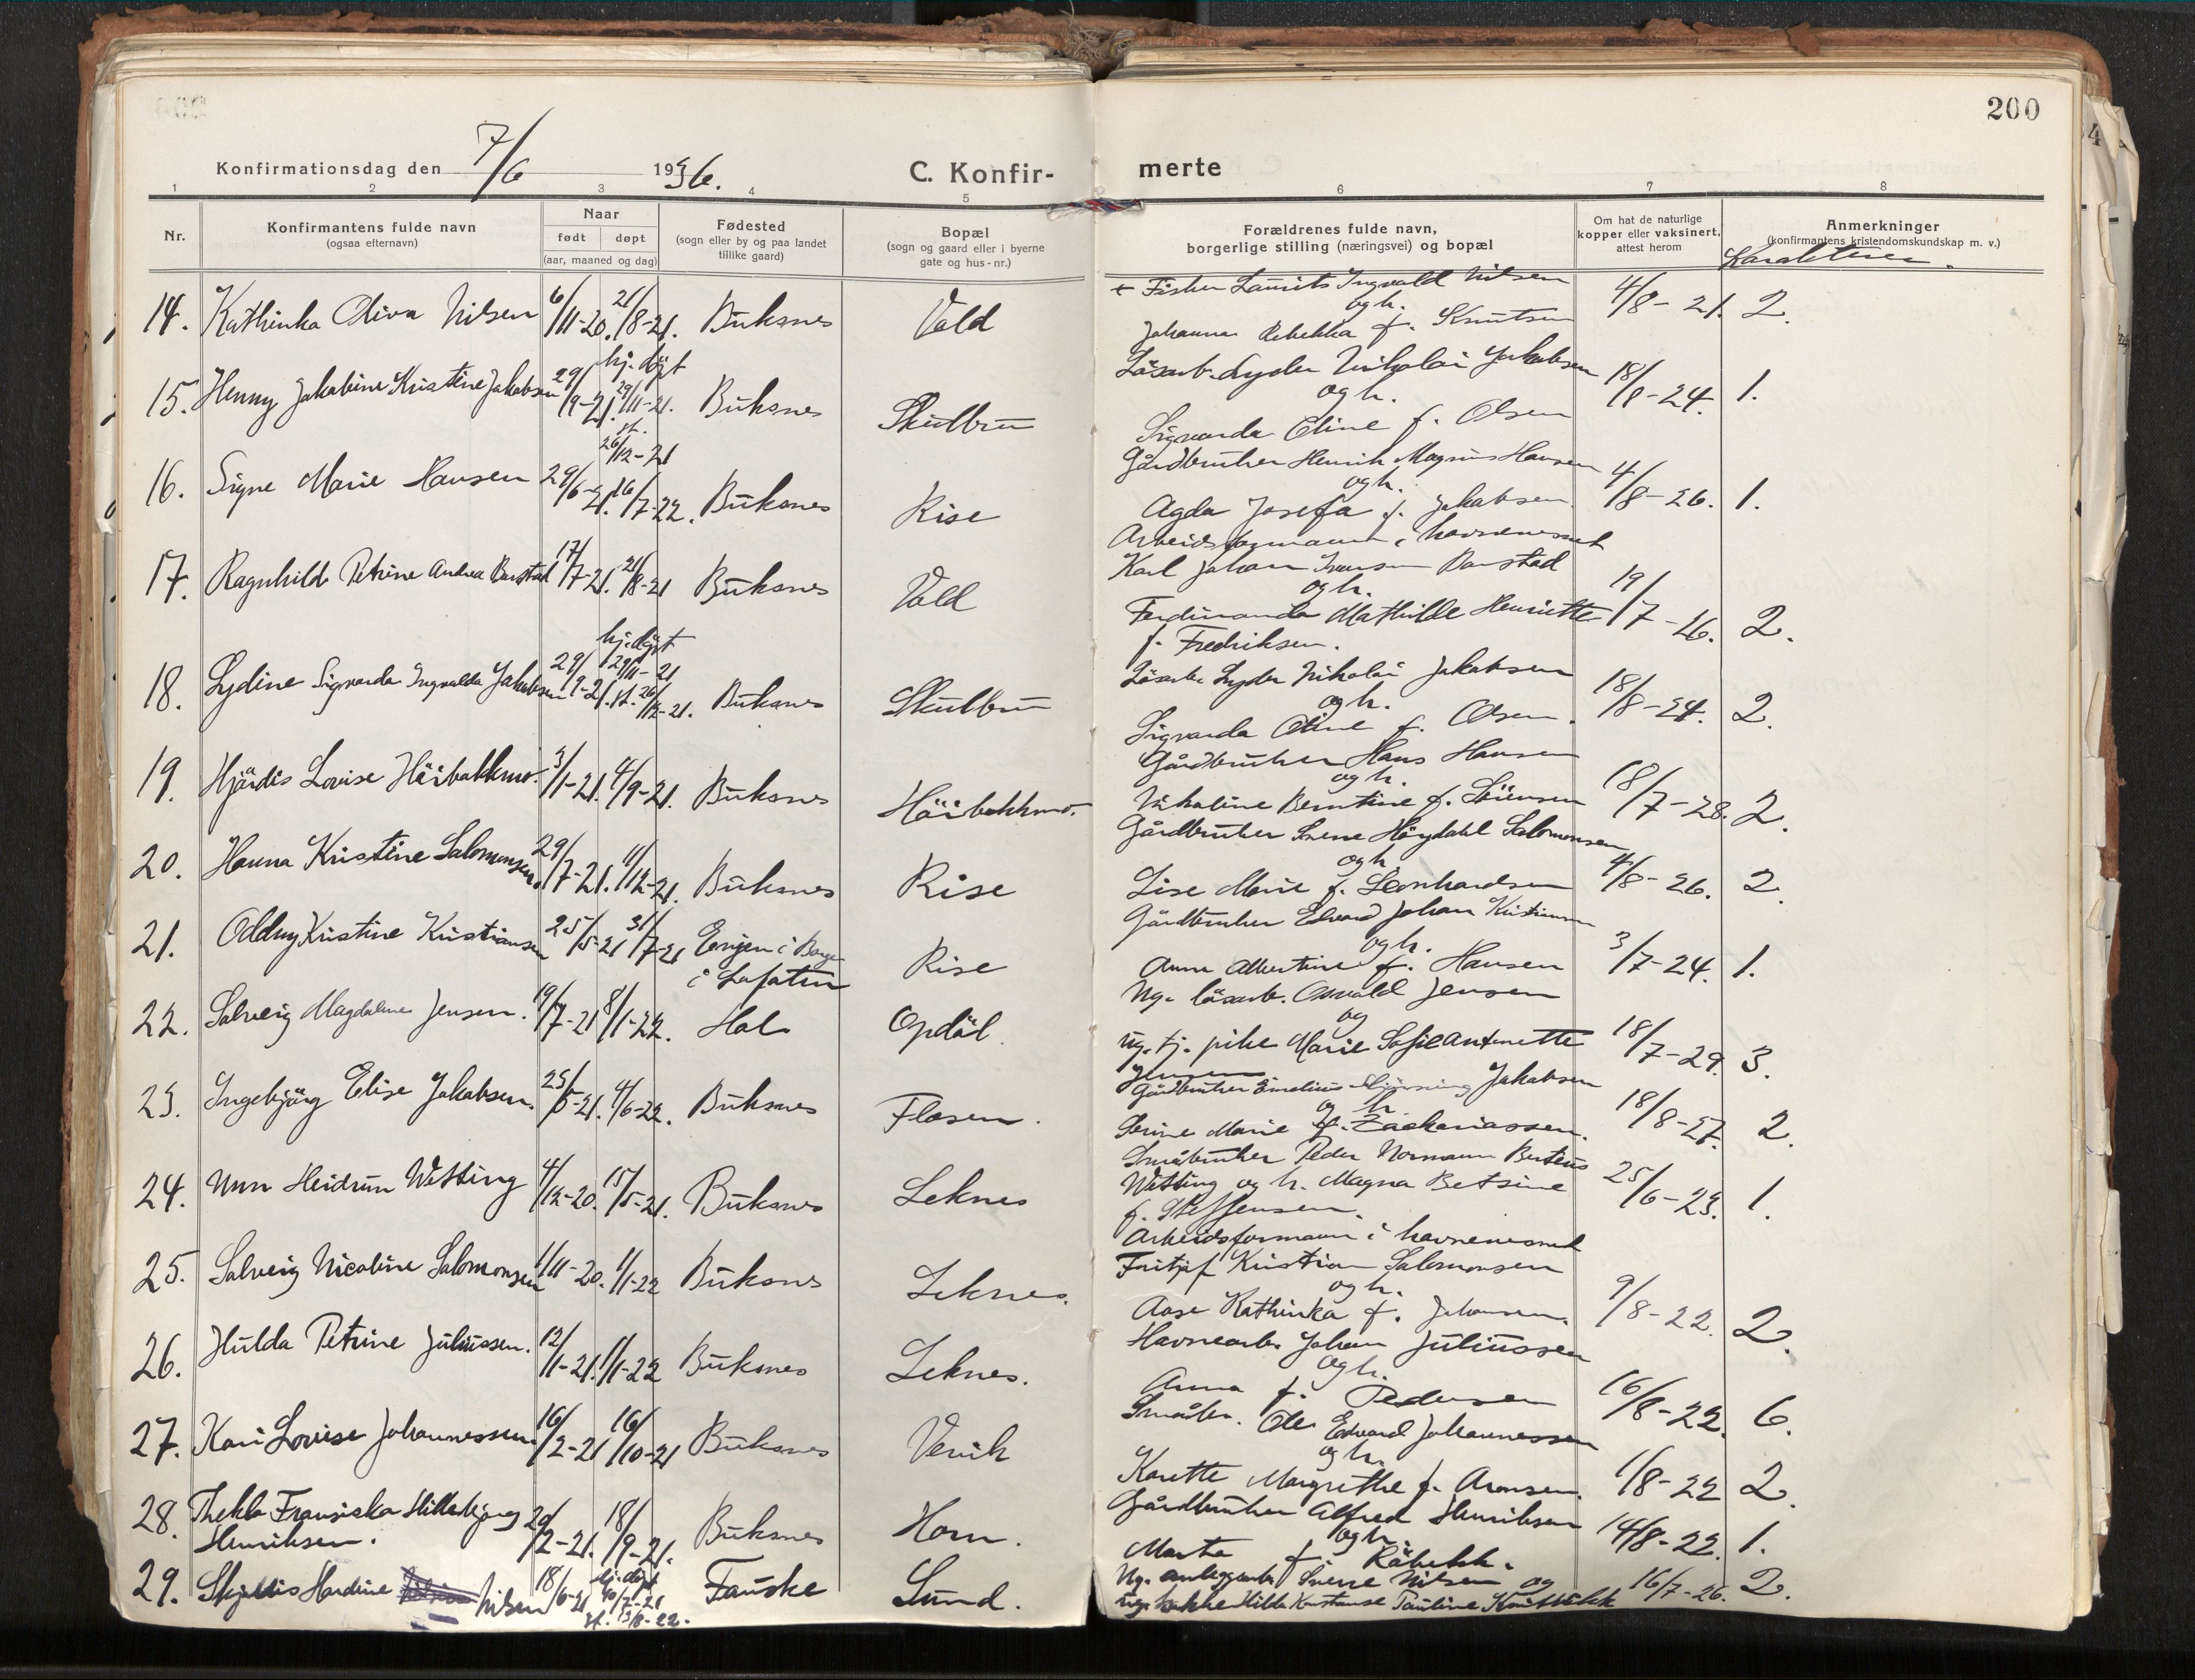 200
Konfirmationsdag den 7/6 1936.
C. Konfirmerte
1 2 3 4 5 6 7 8
Nr.
Konfirmantens fulde navn
(ogsaa efternavn)
Naar
født døpt
(aar, maaned og dag)
Fødested
(sogn eller by og paa landet
tillike gaard)
Bopæl
(sogn og gaard eller i byerne
gate og hus-nr.)
Forældrenes fulde navn,
borgerlige stilling (næringsvei) og bopæl
Om hat de naturlige
kopper eller vaksinert,
attest herom
Anmerkninger
(konfirmantens kristendomskundskap m. v.)
Karakterer.
14. Kathinka Oliva Nilsen 6/11-20. 21/8-21. Buksnes Vold Fisker Laurits Ingvald Nilsen
og h.
Johanna Rebekka f. Knutsen 4/8-21. 2.
15. Henny Jakobine Kristine Jakobsen 29/9-21. hj. døpt 29/11-21. st. 26/12-21 Buksnes Skulbru Løsarb. Lyder Nikolai Jakobsen
og h.
Sigvarda Eline f. Olsen 18/8-24. 1.
16. Signe Marie Hansen 29/6-21. 16/7-22. Buksnes Rise Gårdbruker Henrik Magnus Hansen
og h.
Agda Josefa f. Jakobsen. 4/8-26. 1.
17. Ragnhild Petrine Andrea Barstad 17/7-21. 21/8-21 Buksnes Vold Arbeidsformann i havnevesnet
Karl Johan Barstad
og h.
Ferdinanda Mathilde Henriette
f. Fredriksen. 19/7-26. 2.
18. Lydine Sigvarda Ingvalda Jakobsen 29/9-21. hj. døpt 29/11-21 st. 26/12-21. Buksnes Skulbru Løsarb. Lyder Nikolai Jakobsen
og h.
Sigvarda Eline f. Olsen. 18/8-24. 2.
19. Hjördis Lovise Höibakkmo. 3/1-21. 4/9-21. Buksnes Höibakkmo. Gårdbruker Hans Hansen
og h.
Nikoline Berntine f. Sörensen 18/7-28. 2.
20. Hanna Kristine Salomonsen. 29/7-21. 11/12-21. Buksnes Rise Gårdbruker Sverre Höydahl Salomonsen
og h.
Lise Marie f. Leonhardsen 4/8-26. 2.
21. Oddny Kristine Kristiansen 25/5-21 31/7-21 i Borge
i Lofoten Rise Gårdbruker Edvard Johan Kristiansen
og h.
Anna Albertine f. Hansen 3/7-24. 1.
22. Solveig Magdalene Jensen. 19/7-21 8/1-22. Hol Opdöl Ug. løsarb. Osvald Jensen
og
ug. tj. pike Marie Sofie Antonette
Jensen 18/7-29. 3.
23. Ingebjörg Elise Jakobsen. 25/5-21. 4/6-22. Buksnes Flosen. Gårdbruker Emelius Jakobsen
og h.
Serine Marie f. Zackariassen. 18/8-27. 2.
24. Unn Heidrun Wetting 4/12-20. 15/5-21. Buksnes Leknes Småbruker Peder Normann Berteus
Wetting og h. Magna Betsine
f. Steffensen. 25/6-23. 1.
25. Solveig Nicoline Salomonsen 1/11-20. 1/1-22 Buksnes Leknes. Arbeidsformann i havnevesnet
Fritjof Kristian Salomonsen
og h.
Aase Kathinka f. Johansen. 9/8-22. 2.
26. Hulda Petrine Juliussen. 12/1-21. 1/1-22 Buksnes Leknes. Havnearb. Johan Juliussen
og h.
Anna f. Pedersen 16/8-22. 6.
27. Kari Lovise Johannessen. 16/2-21 16/10-21 Buksnes Vevik Småbr. Ole Edvard Johannessen
og h.
Karette Margrethe f. Aronsen. 1/8-22 2.
28. Thekla Fransiska Hildebjörg
Henriksen. 20/2-21. 18/9-21. Buksnes Horn. Gårdbruker Alfred Henriksen
og h.
Marta f. Räbekk. 14/8-22. 1.
29. Hardine Nilsen 18/6-21 hj. døpt st. 13/8-22. Fauske Sund. Ug. anleggsarb. Sverre Nilsen og
ug. Hilda Konstanse Pauline 16/7-26. 2.